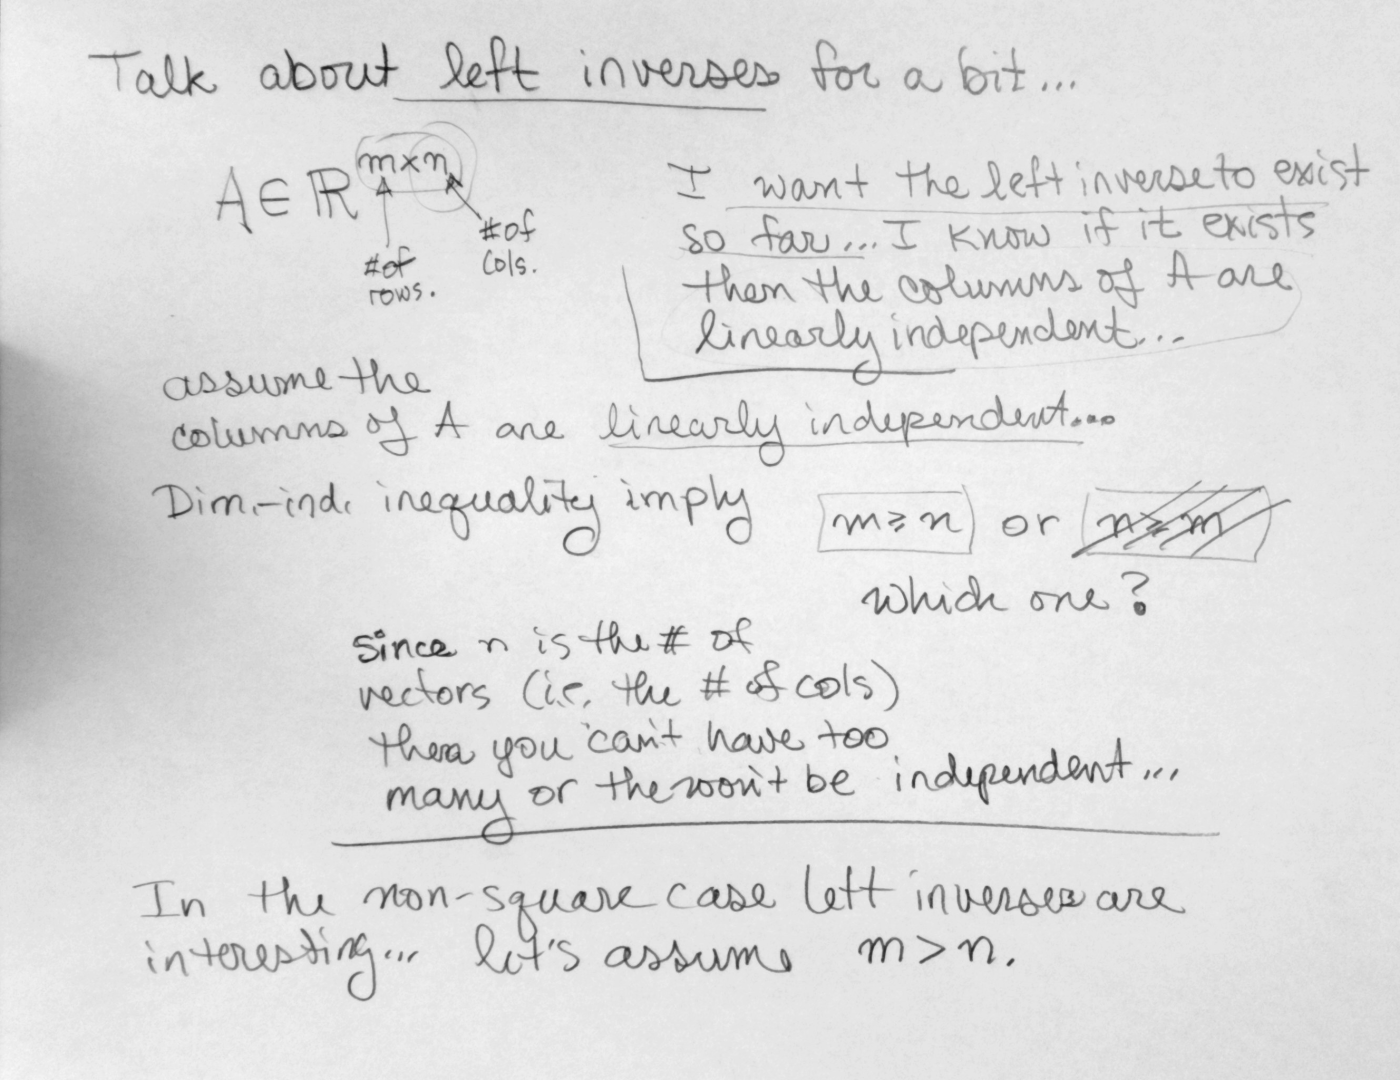 Talk about left inverses for a bit...
A ∈ ℝ m×n
# of rows.
# of cols.
I want the left inverse to exist
so far... I know if it exists
then the columns of A are
linearly independent...
assume the
columns of A are linearly independent...
Dim.-ind. inequality imply m ≥ n or n ≥ m
which one?
since n is the # of
vectors (i.e. the # of cols)
then you can't have too
many or the won't be independent...
In the non-square case left inverses are
interesting... let's assume m > n.